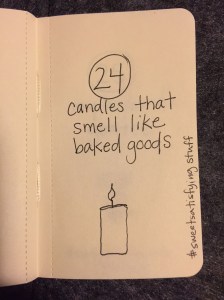 24
candles that
smell like
baked goods
#sweetsatisfying stuff